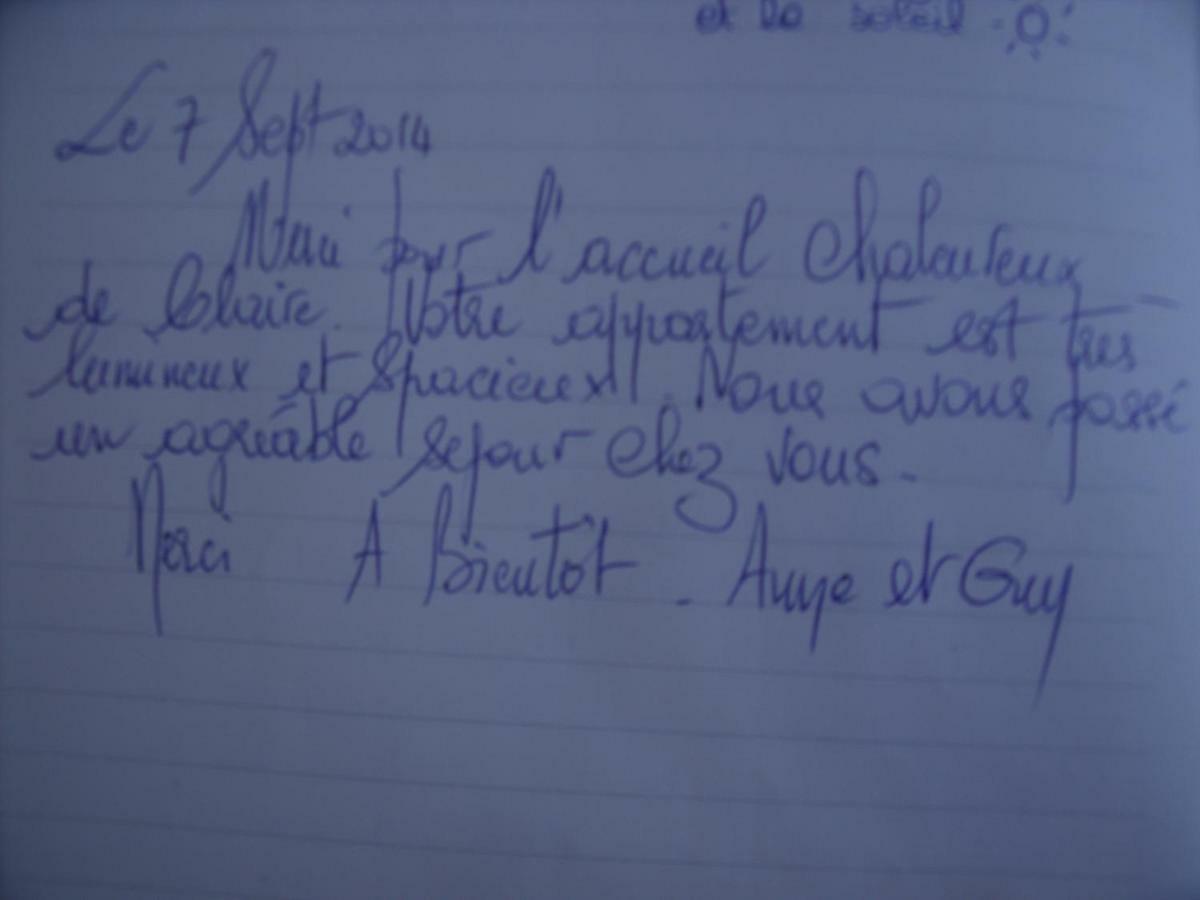 et le soleil
Le 7 Sept 2014
Merci pour l'accueil Chaleureux
de Claire. Votre appartement est très
lumineux et Spacieux! Nous avons passé
un agréable sejour Chez vous.
Merci A Bientôt. Anye et Guy